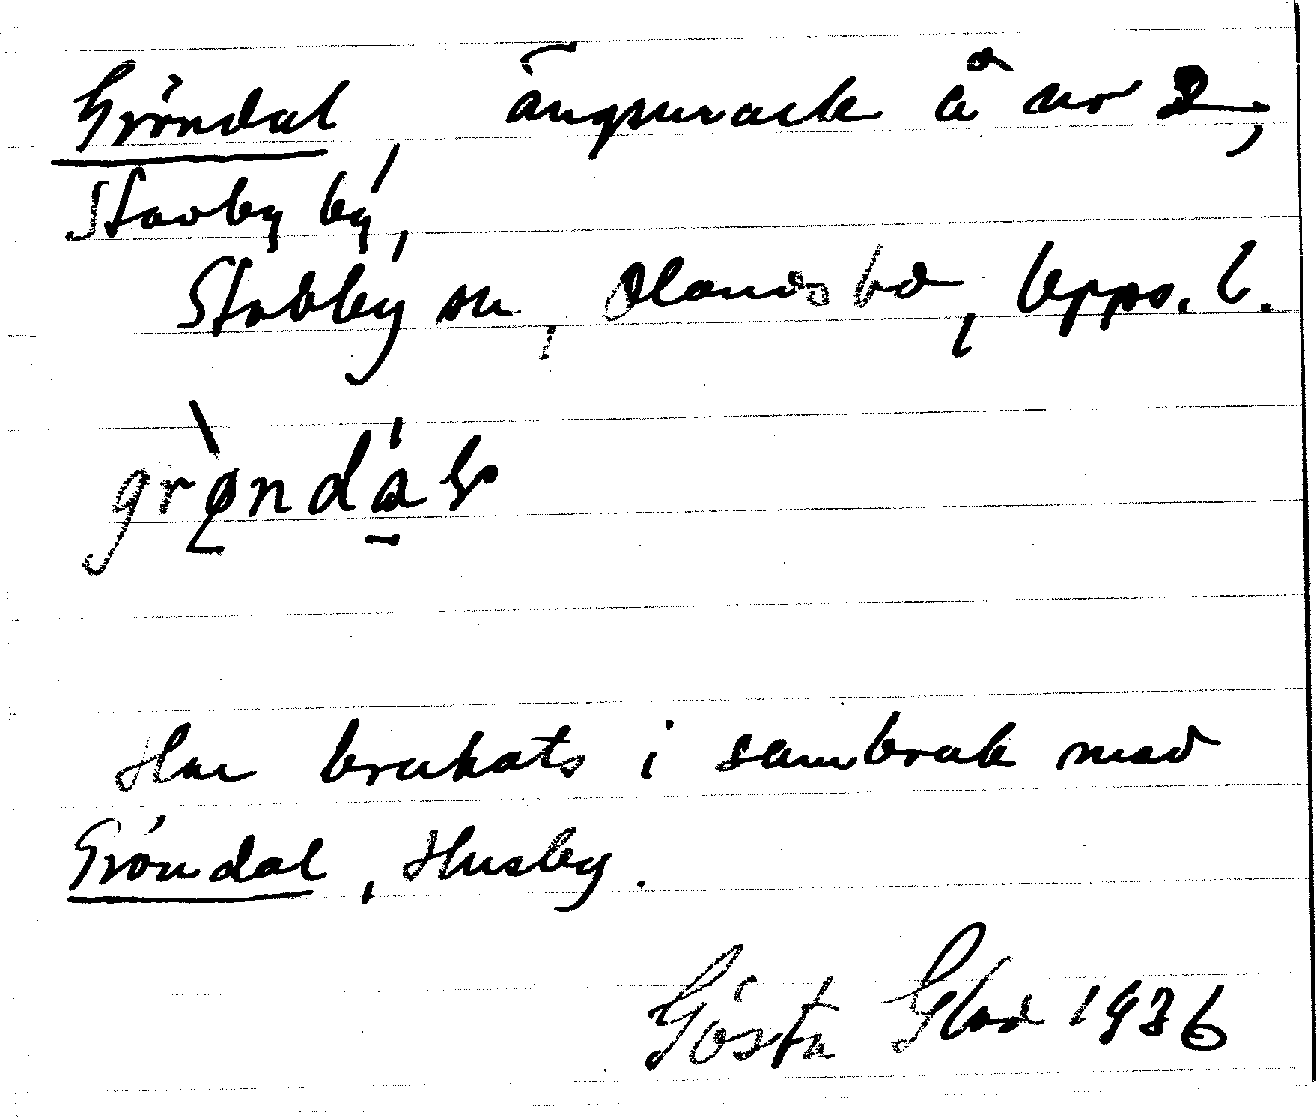 Gröndal, ängsmark å nr 2,
Stavby by,
Stavby sn, Olands hd, Upps. l.
grø̀ndáls
Har brukats i sambruk med
Gröndal, Husby.
Gösta Glad 1936